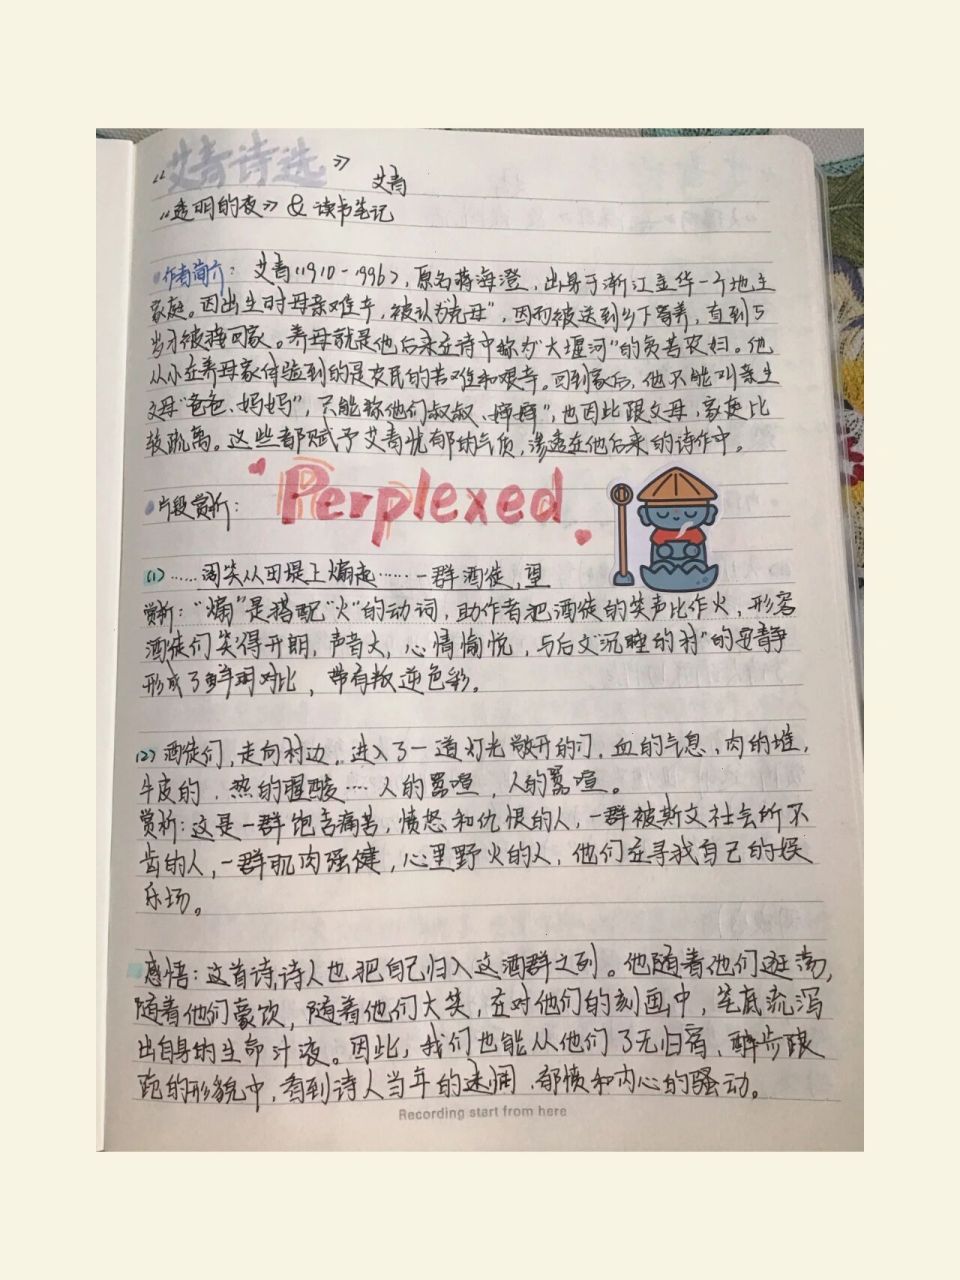 《艾青诗选》
艾青
《透明的夜》& 读书笔记
作者简介：艾青(1910-1996)，原名蒋海澄，出身于浙江金华一个地主
家庭。因出生时母亲难产，被认为“克母”，因而被送到乡下寄养，直到5
岁才被接回家。养母就是他后来在诗中称为“大堰河”的贫苦农妇。他
从小在养母家体验到的是农民的苦难和艰辛。回到家后，他只能叫亲生
父母“爸爸、妈妈”，只能称他们“叔叔、婶婶”，也因此跟父母、家庭比
较疏离。这些都赋予艾青忧郁的气质，渗透在他后来的诗作中。
Perplexed
片段赏析：
(1)……阔笑从田堤上煽起……一群酒徒，望
赏析：“煽”是搭配“火”的动词，助作者把酒徒的笑声比作火，形容
酒徒们笑得开朗，声音大，心情愉悦，与后文“沉睡的村”的安静
形成了鲜明对比，带有叛逆色彩。
(2)酒徒们，走向村边，进入了一道灯光敞开的门，血的气息，肉的堆，
牛皮的，热的腥酸……人的嚣喧，人的嚣喧。
赏析：这是一群饱含痛苦，愤怒和仇恨的人，一群被斯文社会所不
齿的人，一群肌肉强健，心里野火的人，他们在寻找自己的娱
乐场。
感悟：这首诗，诗人也把自己归入这酒群之列。他随着他们逛荡，
随着他们豪饮，随着他们大笑，在对他们的刻画中，笔底流泻
出自身的生命汁液。因此，我们也能从他们了无归宿、醉步踉
跄的形貌中，看到诗人当年的迷惘、郁愤和内心的骚动。
Recording start from here